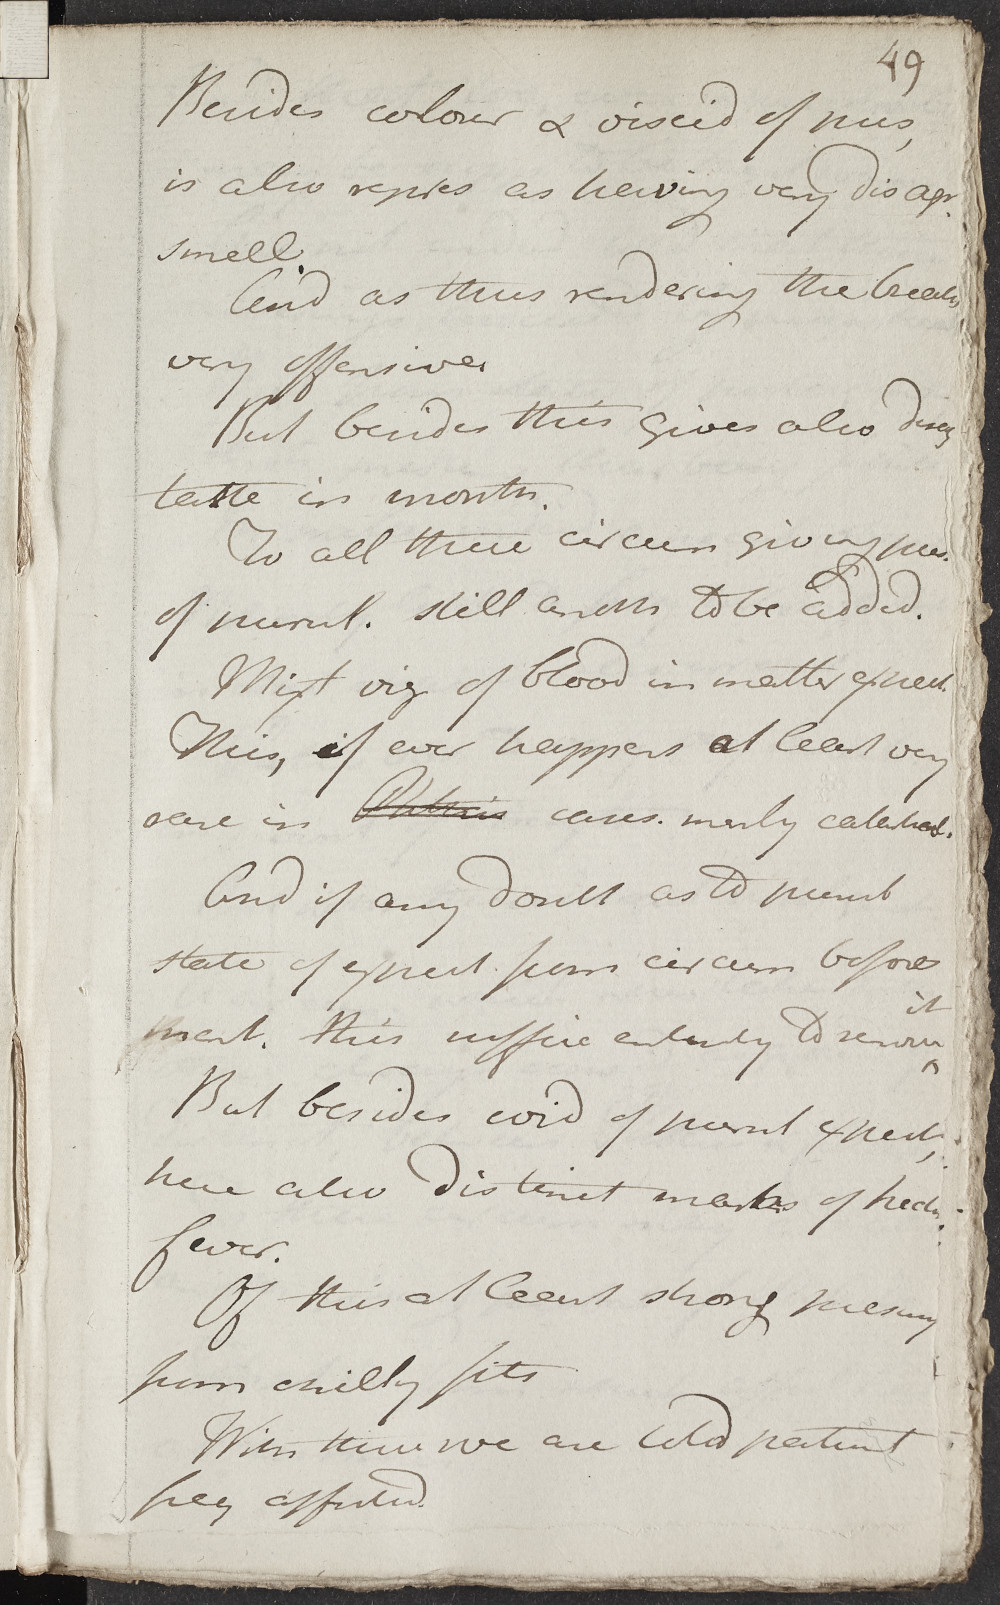 49
Besides colour & viscid of pus,
is also repres as having very disagr.
smell.
And as thus rendering the breath
very offensive
But besides this gives also disag
taste in mouth.
To all these circum giving pres.
of purul. still anoth to be added.
Mixt viz of blood in matter expect.
This, if ever happens at least very
rare in Phthisis cases. merly catarhal.
And if any doubt as to purul
state of expect. from circum before
ment. this suffice entirely to remove it
But besides evid of purul expect,
here also distinct marks of hect.
fever.
Of this at least strong presum
from chilly fits
With these we are told patient
freq affected